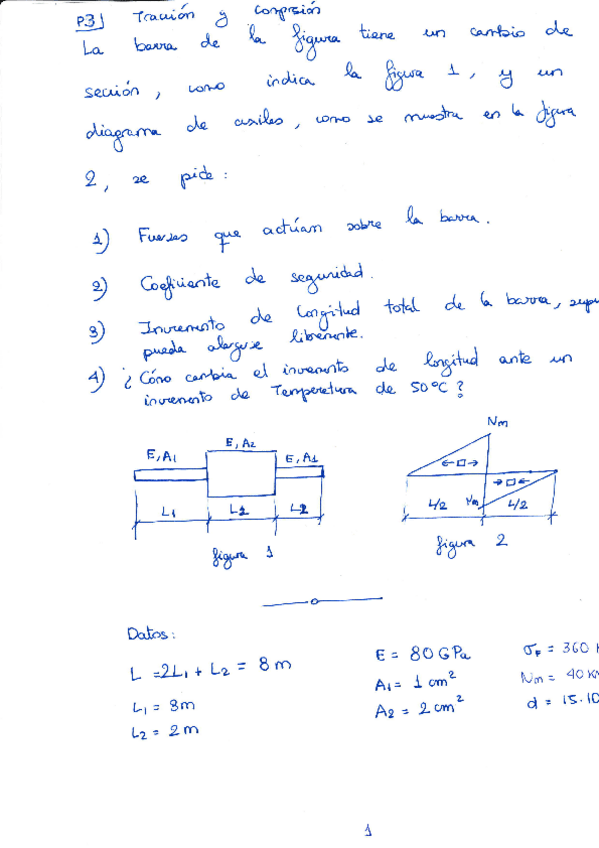 P3) Tracción y compresión
La barra de la figura tiene un cambio de
sección, como indica la figura 1, y un
diagrama de axiles, como se muestra en la figura
2, se pide:
1) Fuerzas que actúan sobre la barra.
2) Coeficiente de seguridad.
3) Incremento de longitud total de la barra, supu
pueda alargarse libremente.
4) ¿Cómo cambia el incremento de longitud ante un
incremento de Temperatura de 50°C?
E, A1 E, A2 E, A1
L1 L2 L2
figura 1
Nm
Nm
L/2 L/2
figura 2
Datos:
L = 2L1 + L2 = 8 m
L1 = 3m
L2 = 2 m
E = 80 GPa
A1 = 1 cm²
A2 = 2 cm²
σF = 360
Nm = 40 KN
d = 15.10
1